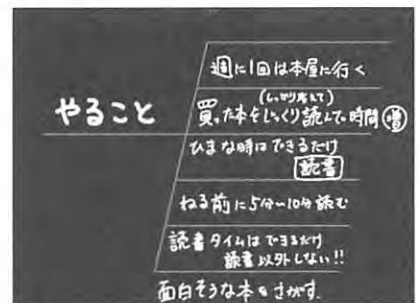 やること
週に1回は本屋に行く
(しっかり考えて)
買った本をじっくり読んで時間増
ひまな時はできるだけ
読書
ねる前に5分〜10分読む
読書タイムはできるだけ
読書以外しない!!
面白そうな本をさがす